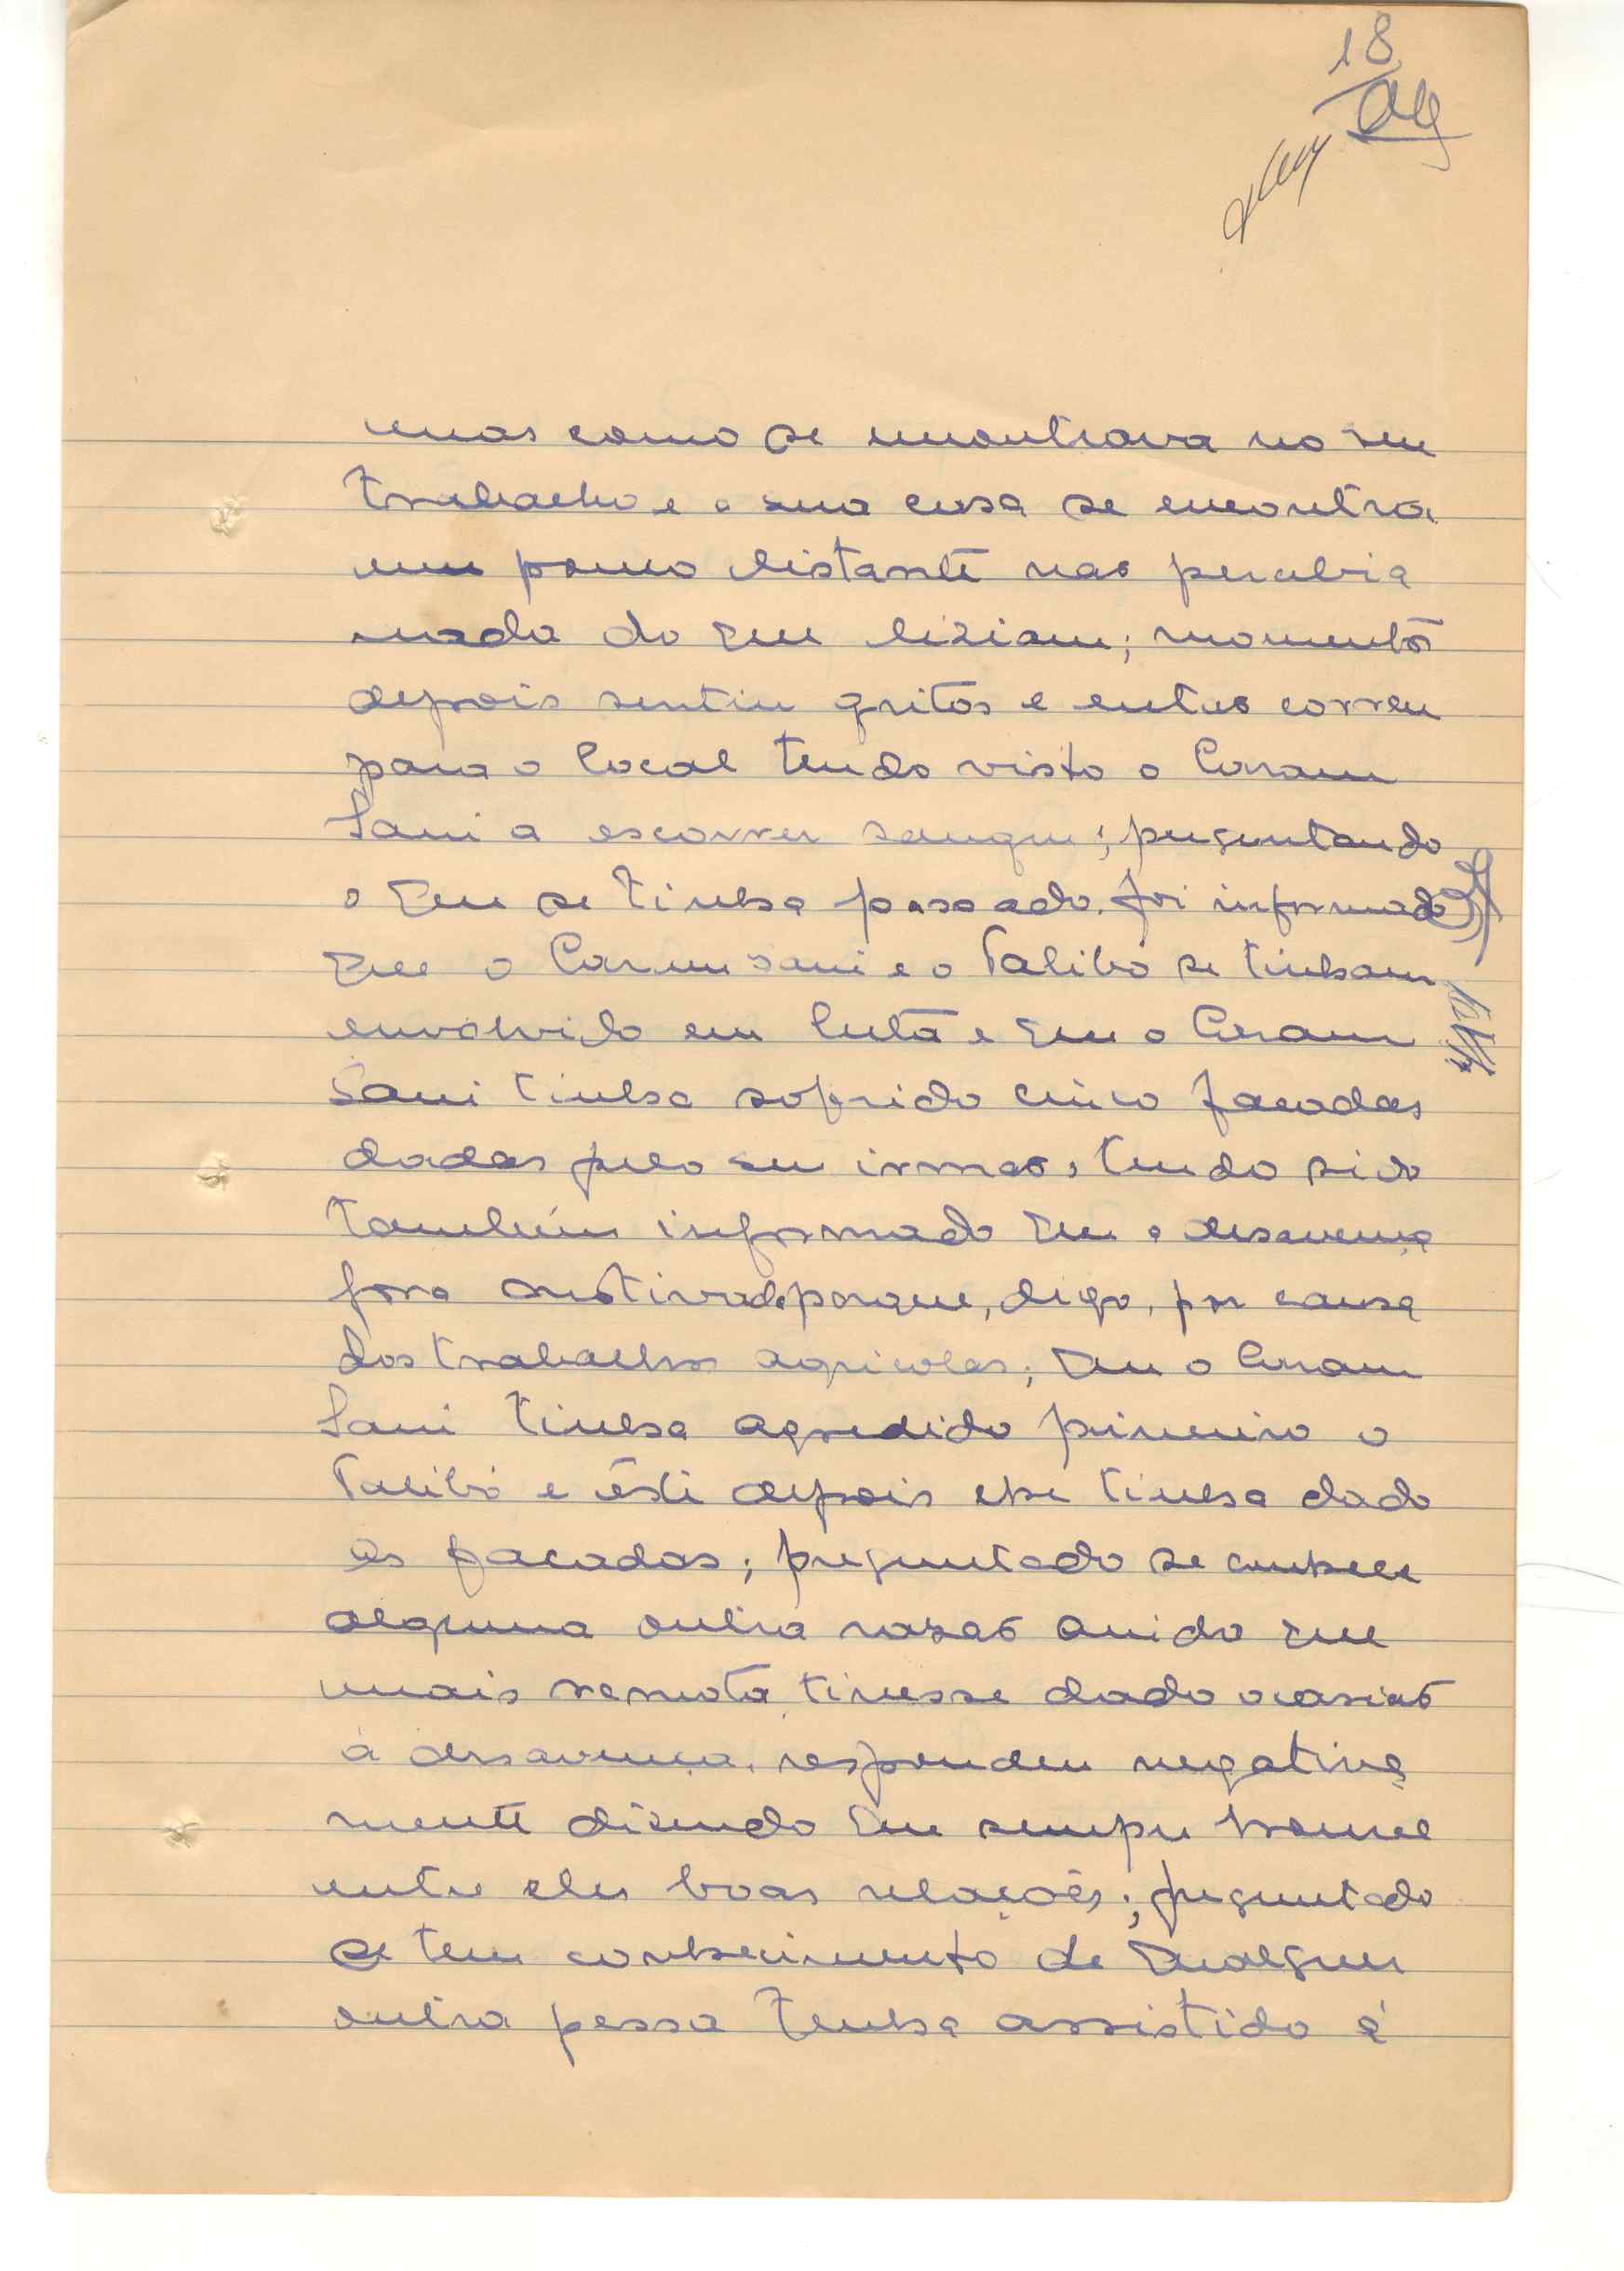 18
mas como se encontrava no seu
trabalho e a sua casa se encontra
um pouco distante nao percebia
nada do que diziam; momentos
depois sentiu gritos e entao correu
para o local tendo visto o Curam
Sani a escorrer sangue; preguntando
o que se tinha passado, foi informado
que o Curam Sani e o Talibó se tinham
envolvido em luta e que o Curam
Sani tinha sofrido cinco facadas
dadas pelo seu irmao, tendo sido
também informado que a desavença
fora motivada porque, digo, por causa
dos trabalhos agricolas; que o Curam
Sani tinha agredido primeiro o
Talibó e êste depois lhe tinha dado
as facadas; preguntado se conhece
alguma outra razaõ ainda que
mais remota, tivesse dado ocasiaõ
á desavença, respondeu negativa
mente dizendo que sempre houve
entre eles boas relaçoês; preguntado
se tem conhecimento de qualquer
outra pessoa tenha assistido á